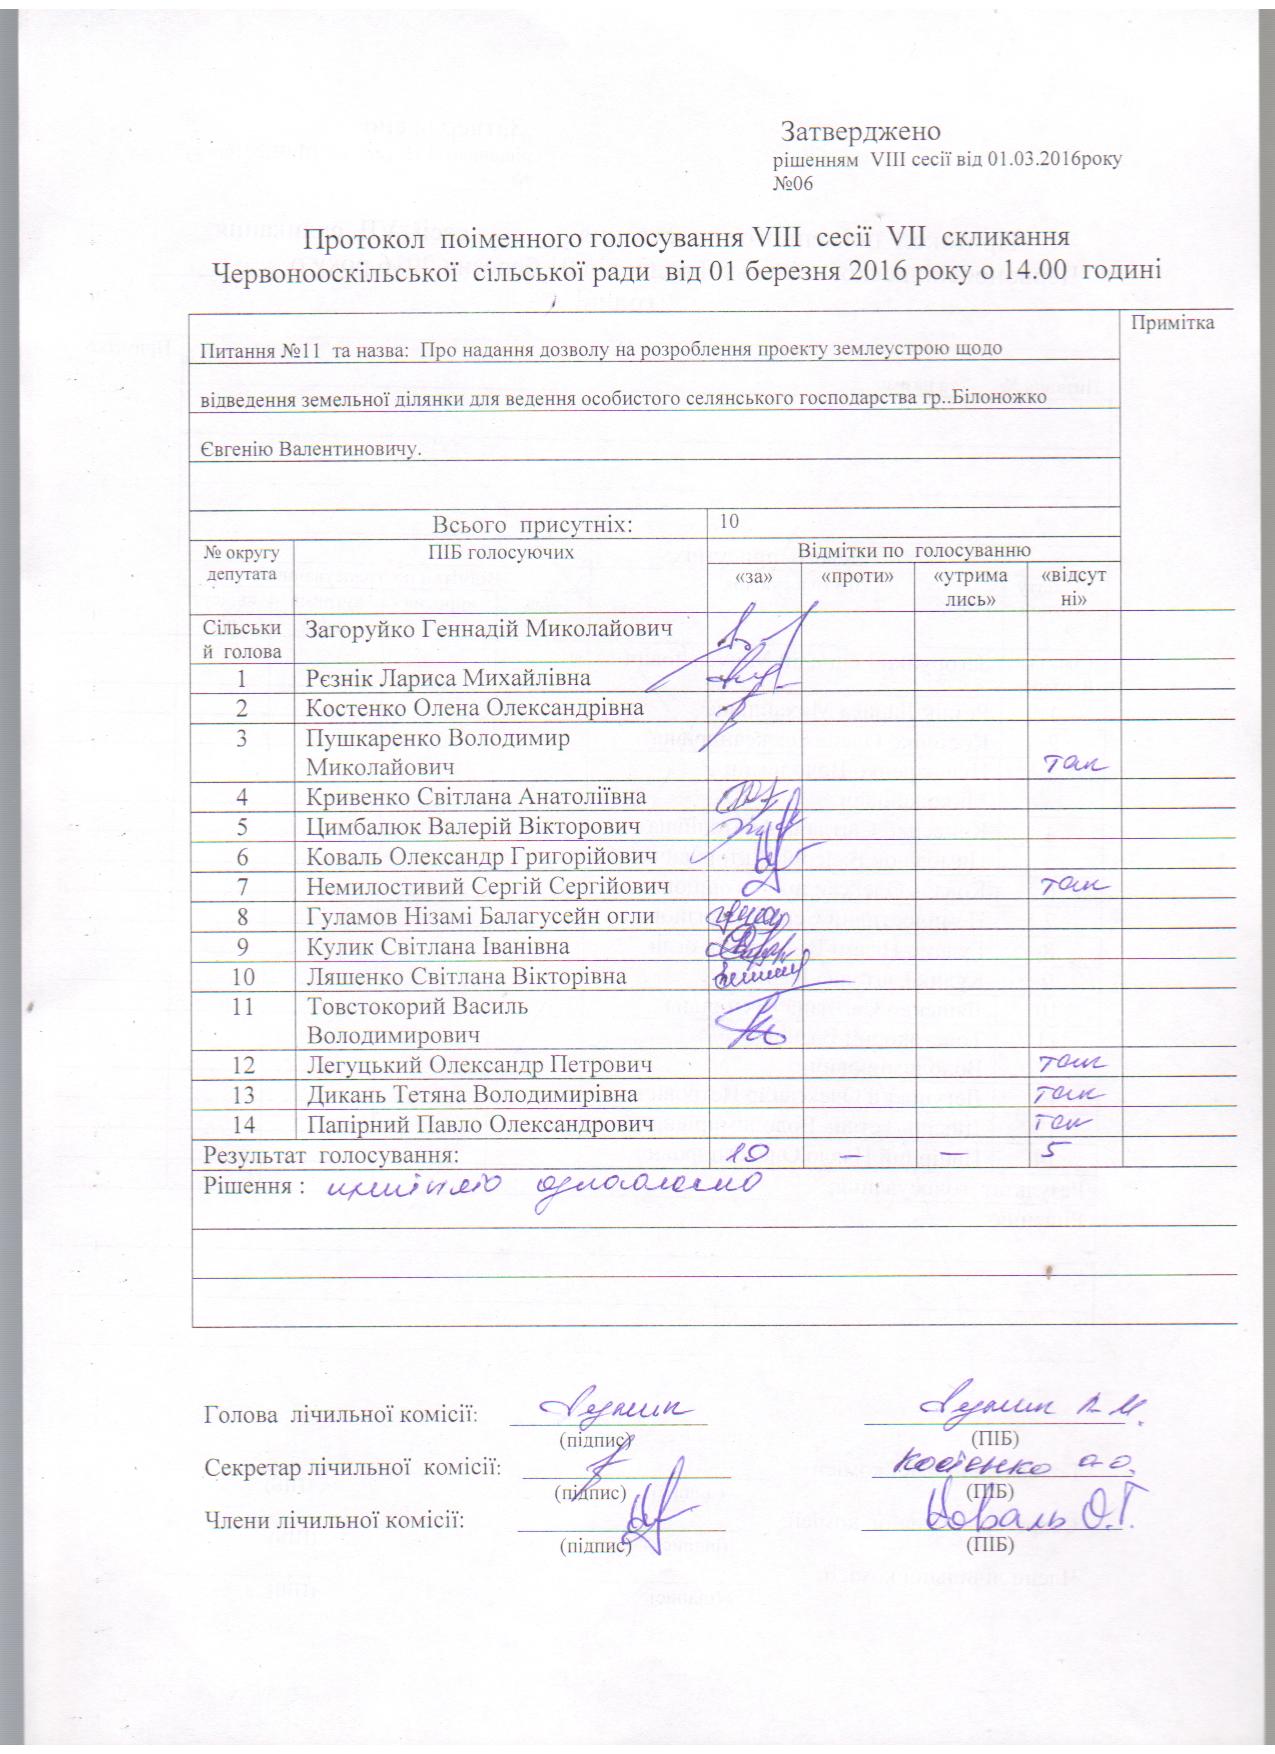 Затверджено
рішенням VIII сесії від 01.03.2016року
№06
Протокол поіменного голосування VIII сесії VII скликання
Червонооскільської сільської ради від 01 березня 2016 року о 14.00 годині
Примітка
Питання №11 та назва: Про надання дозволу на розроблення проекту землеустрою щодо
відведення земельної ділянки для ведення особистого селянського господарства гр..Білоножко
Євгенію Валентиновичу.
Всього присутніх: 10
№ округу депутата ПІБ голосуючих Відмітки по голосуванню
«за» «проти» «утрима лись» «відсут ні»
Сільськи й голова Загоруйко Геннадій Миколайович
1 Рєзнік Лариса Михайлівна
2 Костенко Олена Олександрівна
3 Пушкаренко Володимир
Миколайович так
4 Кривенко Світлана Анатоліївна
5 Цимбалюк Валерій Вікторович
6 Коваль Олександр Григорійович
7 Немилостивий Сергій Сергійович так
8 Гуламов Нізамі Балагусейн огли
9 Кулик Світлана Іванівна
10 Ляшенко Світлана Вікторівна
11 Товстокорий Василь
Володимирович
12 Легуцький Олександр Петрович так
13 Дикань Тетяна Володимирівна так
14 Папірний Павло Олександрович так
Результат голосування: 10 – – 5
Рішення : прийнято одноголосно
Голова лічильної комісії:
(підпис) (ПІБ)
Секретар лічильної комісії: Костенко О.О.
(підпис) (ПІБ)
Члени лічильної комісії: Коваль О.Г.
(підпис) (ПІБ)